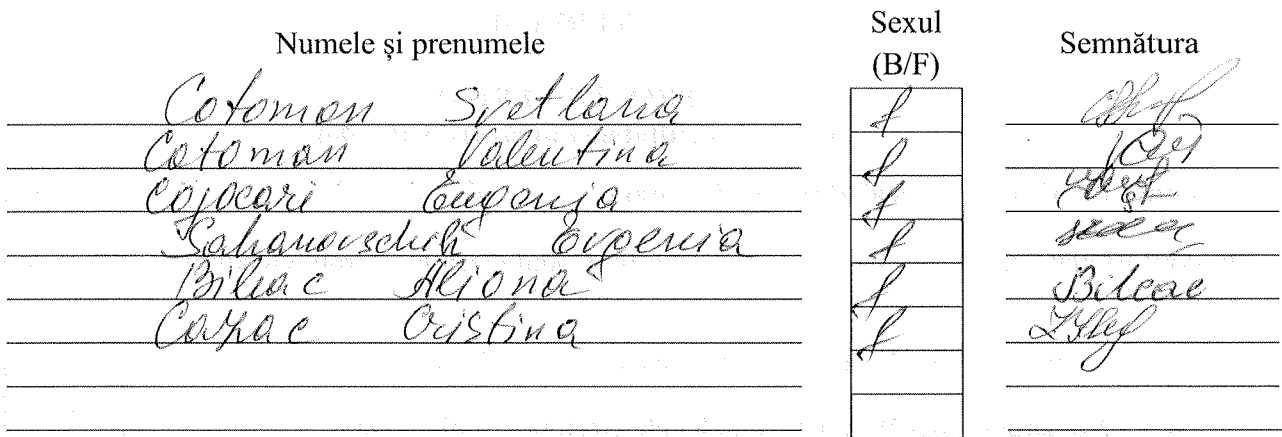 Numele și prenumele Sexul (B/F) Semnătura
Cotoman Svetlana f
Cotoman Valentina f
Cojocari Eugenia f
Evgenia f
Bileac Aliona f Bileac
Cazac Cristina f